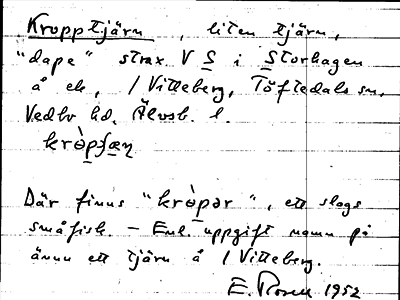 Kropptjärn, liten tjärn,
"dape" strax V S i Storhagen
å ek, 1 Vitteberg, Töftedals sn,
Vedbo hd, Älvsb. l.
kròpʃæɳ
Där finns "kròpər", ett slags
småfisk. - Enl. uppgift namn på
ännu ett tjärn å 1 Vitteberg.
E. Rosen 1952